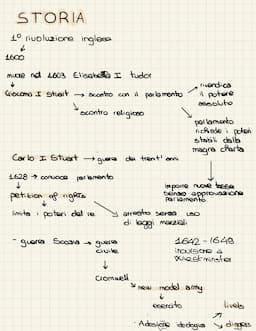 STORIA
1° rivoluzione inglese
1600
muore nel 1603 Elisabetta I tudor
Giacomo I Stuart → scontro con il parlamento → rivendica il potere assoluto
scontro religioso
parlamento richiede i poteri stabiliti dalla magna charta
Carlo I Stuart → guerra dei trent'anni
1628 → convoca parlamento
impone nuove tasse senza approvazione parlamento
petition of rights
limita i poteri del re
arresto senza uso di leggi marziali
- guerra Scozia → guerra civile
1642-1649
Cromwell
new model army
esercito
Adesione ideologia